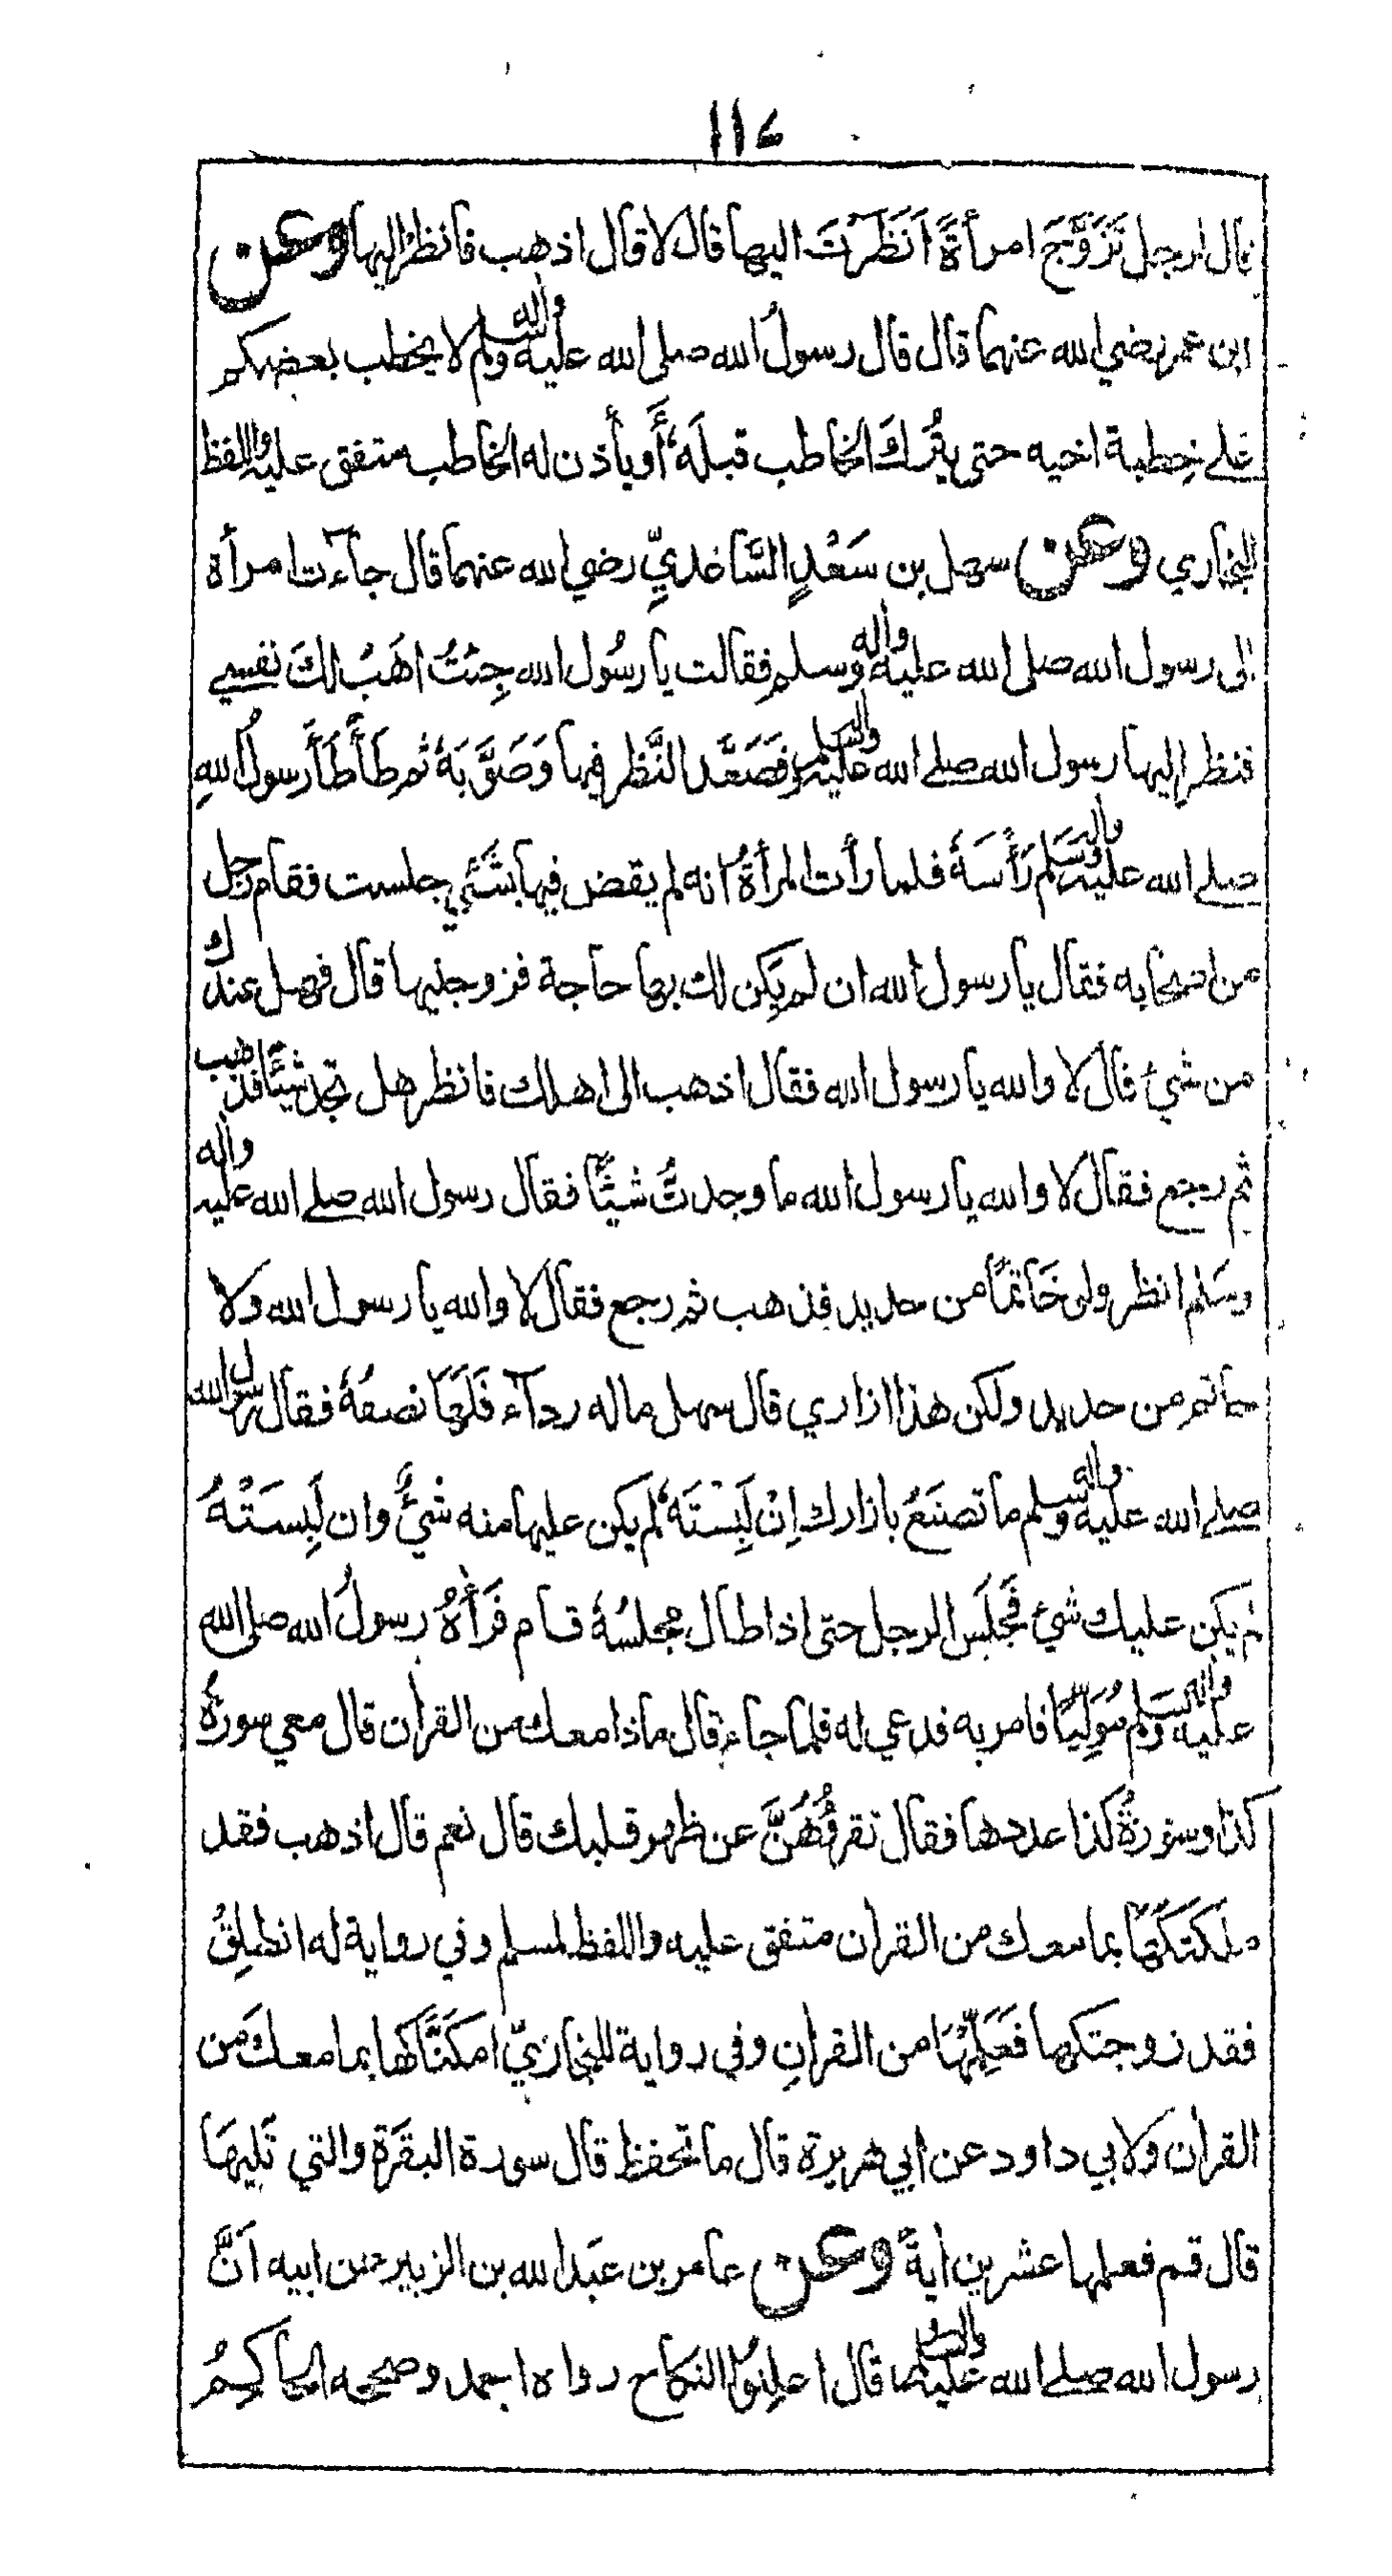 ١١٤
قال لرجل تَزَوَّجَ امرأةً اَنَظَرْتَ اليها قال لا قال اذهب فانظر اليها وعن
ابن عمر رضي الله عنهما قال قال رسولُ الله صلى الله عليه واله وسلم لا يخطب بعضكم
على خِطبة اخيه حتى يتْرُكَ الخاطب قبلَهُ أَو يأذن له الخاطب متفق عليه واللفظ
للبخاري وعن سهل بن سَعْدٍ السَّاعديِّ رضي الله عنهما قال جاءت امرأة
الى رسول الله صلى الله عليه واله وسلم فقالت يا رسُول الله جِئتُ اهَبُ لكَ نفسي
فنظر اليها رسول الله صلى الله عليه واله وسلم فَصَعَّد النَّظر فيها وَصَوَّبَهُ ثم طَأْطَأَ رسولُ اللهِ
صلى الله عليه واله وسلم رَأْسَهُ فلما رأت المرأةُ انه لم يقض فيها شَيْئًا جلست فقام رجل
من اصحابه فقال يا رسول الله ان لم يَكن لك بها حاجة فزوجنيها قال فهل عندك
من شيءٍ قال لا والله يا رسول الله فقال اذهب الى اهلك فانظر هل تجد شيئًا فذهب
ثم رجع فقال لا والله يا رسول الله ما وجدتُ شيئًا فقال رسول الله صلى الله عليه واله
وسَلم انظر ولو خَاتمًا من حديد فذهب ثم رجع فقال لا والله يا رسول الله ولا
خاتم من حديد ولكن هذا ازاري قال سهل ماله رداء فَلَهَا نصفُهُ فقال رسول الله
صلى الله عليه واله وسلم ما تصنَعُ بازارك اِنْ لَبِسْتَهُ لم يكن عليها منه شيءٌ وان لَبِسَتْهُ
لم يكن عليك شيء فَجَلَسَ الرجل حتى اذا طال مجلسُهُ قام فَرَأٰهُ رسولُ الله صلى الله
عليه واله وسلم مُوَلِّيًا فامر به فدعي له فلما جاء قال ماذا معك من القرأن قال معي سورةُ
كذا وسورةُ كذا عددها فقال تقرؤُهُنَّ عن ظهر قلبك قال نعم قال اذهب فقد
ملكتكَهَا بما معك من القرأن متفق عليه واللفظ لمسلم وفي رواية له انطلِقْ
فقد زوجتكها فَعَلِّمْهَا من القرأنِ وفي رواية للبخاريِّ امكنَّاكها بما معك من
القرأن ولابي داود عن ابي هريرة قال ما تحفظ قال سورة البقَرَة والتي تَلِيهَا
قال قم فعلمها عشرين اٰيةً وعن عامر بن عَبد الله بن الزبير عن ابيه اَنَّ
رسول الله صلى الله عليه واله وسلم قال اعلِنوا النكاح رواه احمد وصححه الحاكِمُ